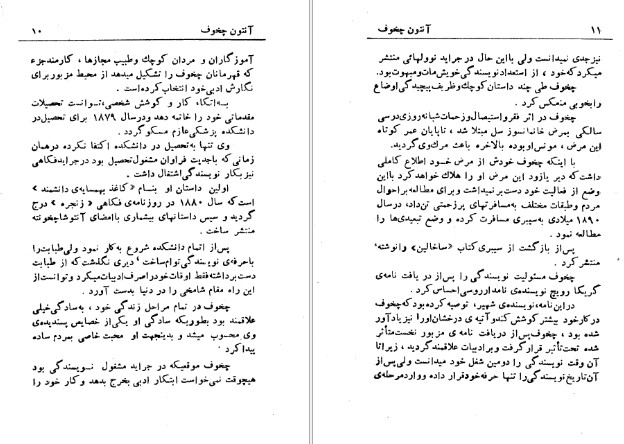 آنتون چخوف ۱۰
آموزگاران و مردان کوچك وطبیب مجازها ، کارمندجزء
که قهرمانان چخوف را تشکیل میدهد از محیط مزبوربرای
نگارش ادبی‌خود انتخاب‌کرده‌است.
به‌اتکاء کار و کوشش شخصی‌توانست تحصیلات
مقدماتی خود را خاتمه دهد ودرسال ۱۸۷۹ برای تحصیل‌در
دانشکده پزشکی عازم مسکو گردد .
وی تنها به‌تحصیل در دانشکده اکتفا نکرده درهمان
زمانی که باجدیت فراوان مشغول تحصیل بود درجرایدفکاهی
نیز بکار نویسندگی اشتغال داشت .
اولین داستان او بنام «کاغذ بهمسایه‌ی دانشمند »
است‌که سال ۱۸۸۰ در روزنامه‌ی فکاهی «زنجره » درج
گردید و سپس داستانهای بیشماری باامضای آنتوشاچخونته
منتشر ساخت .
پس‌از اتمام دانشکده شروع به‌کار نمود ولی‌طبابت‌را
باحرفه‌ی نویسندگی‌توام‌ساخت ' دیری نگذشت که از طبابت
دست‌برداشته‌فقط اوقات‌خودراصرف‌ادبیات‌میکرد وتوانست‌از
این راه مقام شامخی را در دنیا بدست آورد .
چخوف در تمام مراحل زندگی خود ، به‌سادگی‌خیلی
علاقمند بود بطوریکه سادگی او یکی‌از خصایص پسندیده‌ی
وی محسوب میشد و بدینجهت او محبت خاصی بمردم ساده
پیداکرد '
چخوف موقعیکه در جراید مشغول نویسندگی بود
هیچوقت نمی‌خواست ابتکار ادبی بخرج بدهد وکار خود را
آنتون چخوف ۱۱
نیزجدی نمیدانست ولی بااین حال درجراید نوولهائی منتشر
میکردکه‌خود ، از استعداد نویسندگی‌خویش‌مات‌ومبهوت‌بود.
چخوف طی چند داستان کوچك وظریف پیچیدگی‌اوضاع
رابخوبی منعکس کرد.
چخوف در اثر فقرواستیصال‌وزحمات‌شبانه‌روزی‌درسی
سالگی بمرض خانمانسوز سل مبتلا شد ، تاپایان عمر کوتاه
این مرض ، مونس‌اوبوده بالاخره باعث مرگ‌وی‌گردید.
با اینکه چخوف خودش از مرض خسود اطلاع کاملی
داشت‌که دیر یازود این مرض او را هلاك خواهدکرد بااین
وضع از فعالیت خود دست‌برنمیداشت وبرای مطالعه براحوال
مردم وطبقات مختلف به‌مسافرتهای پرزحمتی تن‌داد، درسال
۱۸۹۰ میلادی به‌سیبری مسافرت کرده و وضع تبعیدی‌ها را
مطالعه نمود .
پس‌از بازگشت از سیبری کتاب «ساخالین» رانوشته'
منتشرکرد .
چخوف مسئولیت نویسندگی را پس‌از در یافت نامه‌ی
گریگا رویچ نویسنده‌ی نامدار روسی احساس‌کرد .
دراین‌نامه، نویسنده‌ی شهیر، توصیه کرده بودکه‌چخوف
درکارخود بیشتر کوشش کندوآتیه‌ی درخشان‌اورا نیزیادآور
شده بود ، چخوف‌پس‌از دریافت نامه‌ی مزبور نخست‌متأثر
شده تحت‌تأثیر قرارگرفت وبرادبیات علاقمند گردید ، زیراتا
آن وقت نویسندگی را دومین شغل خود میدانست ولی‌پس‌از
آن‌تاریخ‌نویسندگی‌را تنها حرفه‌خودقرار داده وواردمرحله‌ی